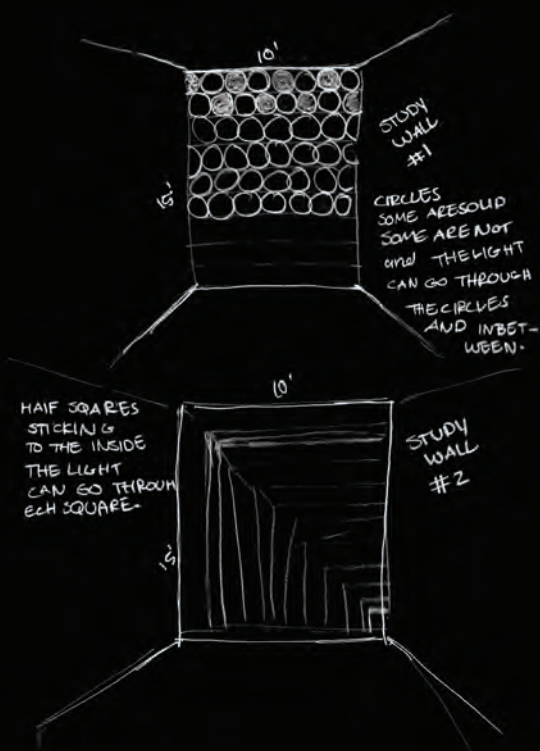 10'
15'
STUDY
WALL
#1
CIRCLES
SOME ARE SOLID
SOME ARE NOT
and THE LIGHT
CAN GO THROUGH
THE CIRCLES
AND INBET-
WEEN.
10'
15'
HAlF SQARES
STICKING
TO THE INSIDE
THE LIGHT
CAN GO THROUH
ECH SQUARE.
STUDY
WALL
#2